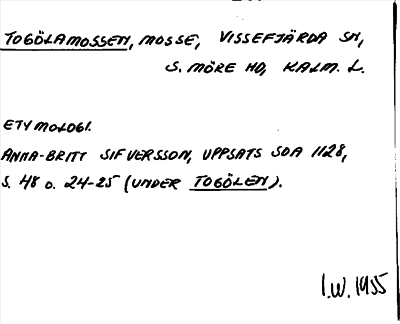 TOGÖLAMOSSEN, MOSSE, VISSEFJÄRDA SN,
S. MÖRE HD, KALM. L.
ETYMOLOGI.
ANNA-BRITT SIFVERSSON, UPPSATS SOA 1128,
S. 48 O. 24-25 (UNDER TOGÖLEN).
I.W. 1955